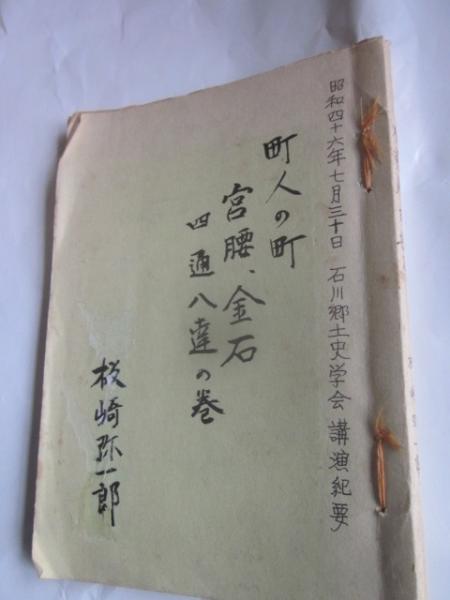 昭和四十六年七月三十日 石川郷土史学会 講演紀要
町人の町
宮腰、金石
四通八達の巻
桜崎弥一郎